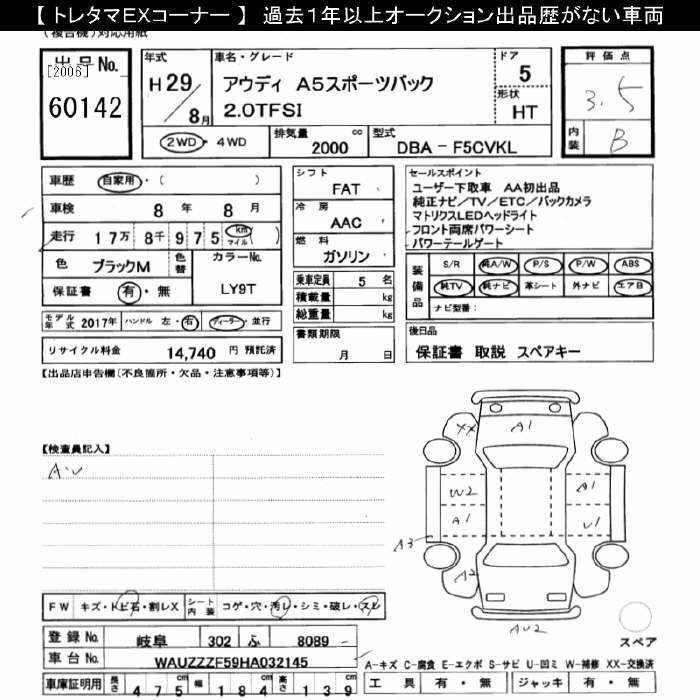 【 トレタマEXコーナー 】 過去1年以上オークション出品歴がない車両
(複合機)対応用紙
出品No.
[2006]
60142
年式
H29/8月
車名・グレード
アウディ A5スポーツバック
2.0TFSI
ドア
5
形状
HT
2WD・4WD
排気量
2000 cc
型式
DBA - F5CVKL
評価点
3.5
内装
B
車歴 自家用・( )
車検 8年 8月
走行 17万8千975 km マイル( )
色 ブラックM 色替 カラーNo.
保証書 有・無 LY9T
モデル年式 2017年 ハンドル 左・右 ディーラー・並行
リサイクル料金 14,740 円 預託済
シフト
FAT
冷房
AAC
燃料
ガソリン
乗車定員 5 名
積載量 kg
総重量 kg
書類期限
月 日
セールスポイント
ユーザー下取車 AA初出品
純正ナビ/TV/ETC/バックカメラ
マトリクスLEDヘッドライト
フロント両席パワーシート
パワーテールゲート
装備品
S/R 純A/W P/S P/W ABS
純TV 純ナビ 革シート 外ナビ エアB
ナビ型番:
後日品
保証書 取説 スペアキー
【出品店申告欄(不良箇所・欠品・注意事項等)】
【検査員記入】
A・U
XX
A1
W2
A1
A1
U1
A3
A2
AU2
スペア
FW キズ・トビ石・割レX シート内装 コゲ・穴・汚レ・シミ・破レ・スレ
登録No. 岐阜 302 ふ 8089
車台No. WAUZZZF59HA032145
車庫証明用 長さ 475cm 幅 184cm 高さ 139cm
A-キズ C-腐食 E-エクボ S-サビ U-凹ミ W-補修 XX-交換済
工具 有・無 ジャッキ 有・無